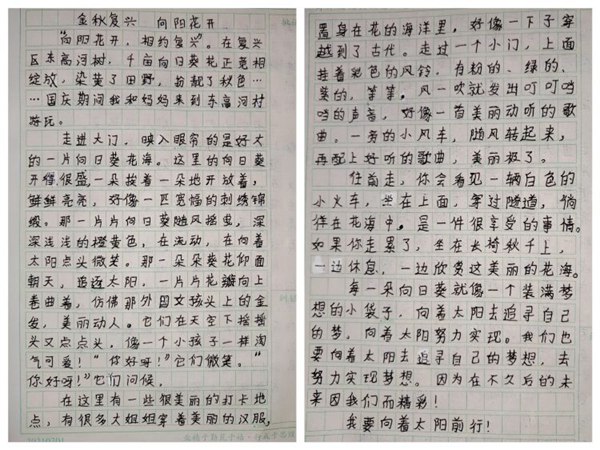 金秋复兴 向阳花开
"向阳花开,相约复兴"。在复兴
区东高河村,千亩向日葵花正竞相
绽放,染黄了田野,扮靓了秋色…
…国庆期间我和妈妈来到东高河村
游玩。
走进大门,映入眼帘的是好大
的一片向日葵花海。这里的向日葵
开得很盛一朵挨着一朵地开放着,
鲜鲜亮亮,好像一匹宽幅的刺绣锦
缎。那一片片向日葵随风摇曳,深
深浅浅的橙黄色,在流动,在向着
太阳点头微笑。那一朵朵葵花仰面
朝天,追逐太阳,一片片花瓣向上
卷曲着,仿佛那外国女孩头上的金
发,美丽动人。它们在天空下摇摇
头又点点头,像一个小孩子一样淘
气可爱!"你好呀!"它们微笑。"
你好呀!"它们问候。
在这里有一些很美丽的打卡地
点,有很多大姐姐穿着美丽的汉服,
置身在花的海洋里,好像一下子穿
越到了古代。走过一个小门,上面
挂着彩色的风铃,有粉的、绿的、
葵的,等等,风一吹就发出叮叮当
当的声音,好像一首美丽动听的歌
曲。一旁的小风车,随风转起来,
再配上好听的歌曲,美丽极了。
往前走,你会看见一辆白色的
小火车,坐在上面,穿过隧道,徜
徉在花海中。是一件很享受的事情。
如果你走累了,坐在长椅秋千上,
一边休息,一边欣赏这美丽的花海。
每一朵向日葵就像一个装满梦
想的小袋子,向着太阳去追寻自己
的梦,向着太阳努力实现。我们也
要向着太阳去追寻自己的梦想,去
努力实现梦想。因为在不久后的未
来因我们而精彩!
我要向着太阳前行!